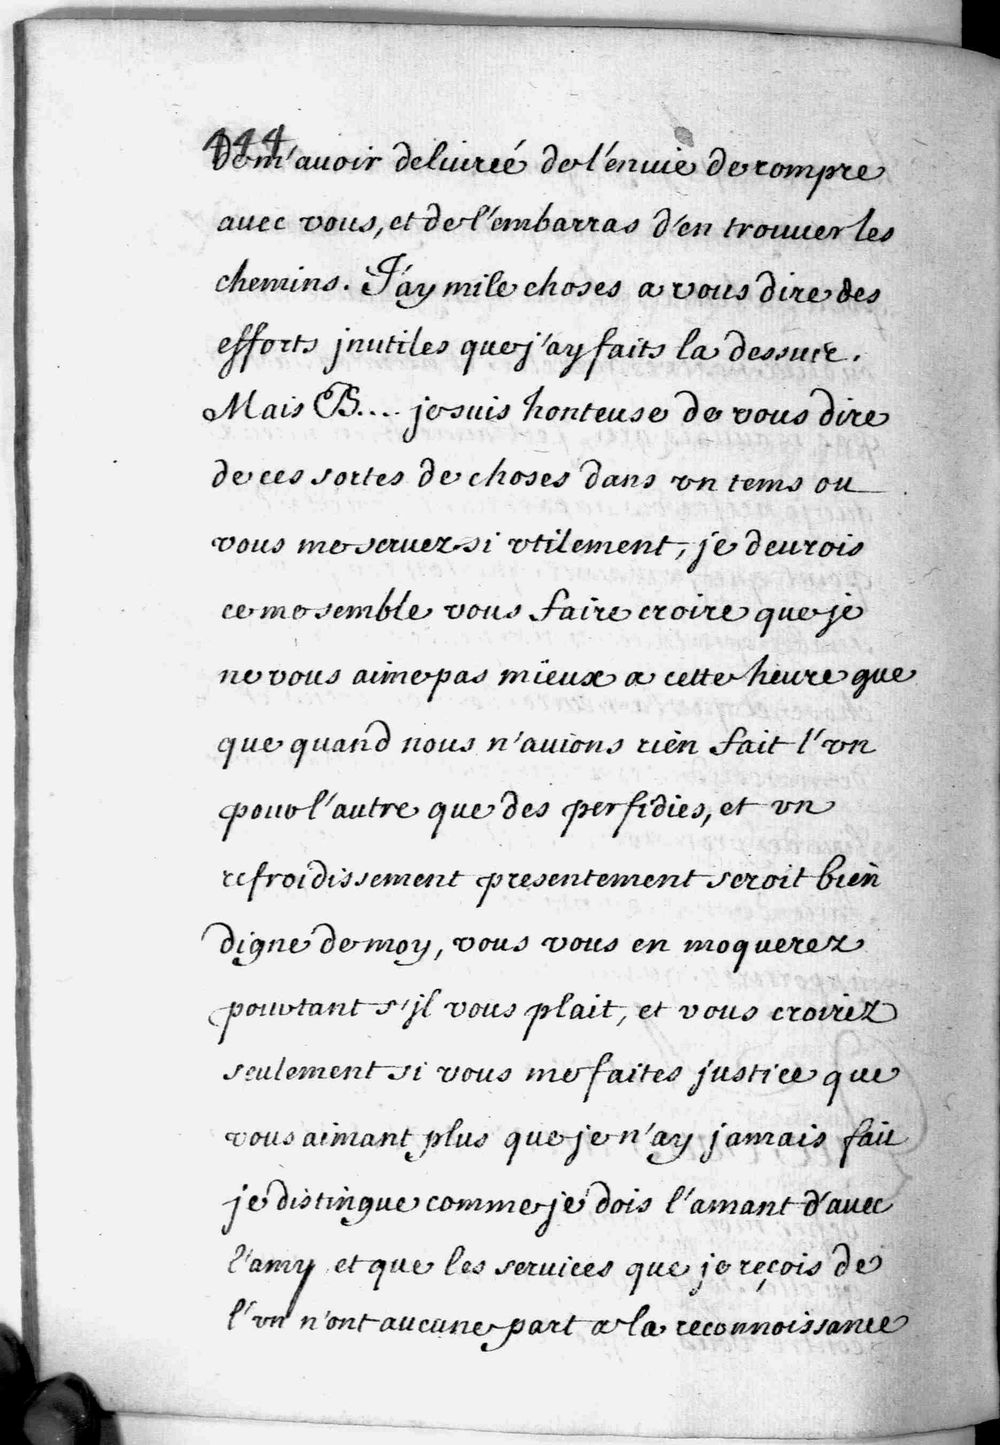 444
De m'auoir deliureé de l'enuie de rompre
auec vous, et de l'embarras d'en trouuer les
chemins. J'ay mile choses a vous dire des
efforts jnutiles que j'ay faits la dessus.
Mais B.... je suis honteuse de vous dire
de ces sortes de choses dans vn tems ou
vous me seruez si vtilement, je deurois
ce me semble vous faire croire que je
ne vous aime pas mieux a cette heure que
que quand nous n'auions rien fait l'vn
pour l'autre que des perfidies, et vn
refroidissement presentement seroit bien
digne de moy, vous vous en moquerez
pourtant s'jl vous plait, et vous croirez
seulement si vous me faites justice que
vous aimant plus que je n'ay jamais fait
je distingue comme je dois l'amant d'auec
l'amy et que les seruices que je reçois de
l'vn n'ont aucune part a la reconnoissance